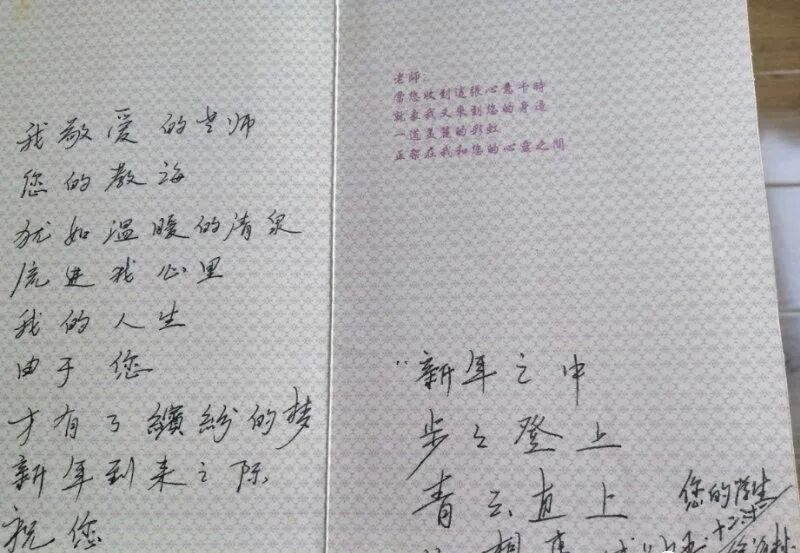 我敬爱的老师
您的教诲
犹如温暖的清泉
流进我心里
我的人生
由于您
才有了缤纷的梦
新年到来之际
祝您
老師：
當您收到這張心意卡時
就象我又來到您的身邊
一道美麗的彩虹
正架在我和您的心靈之間
新年之中
步々登上
青云直上
您的学生